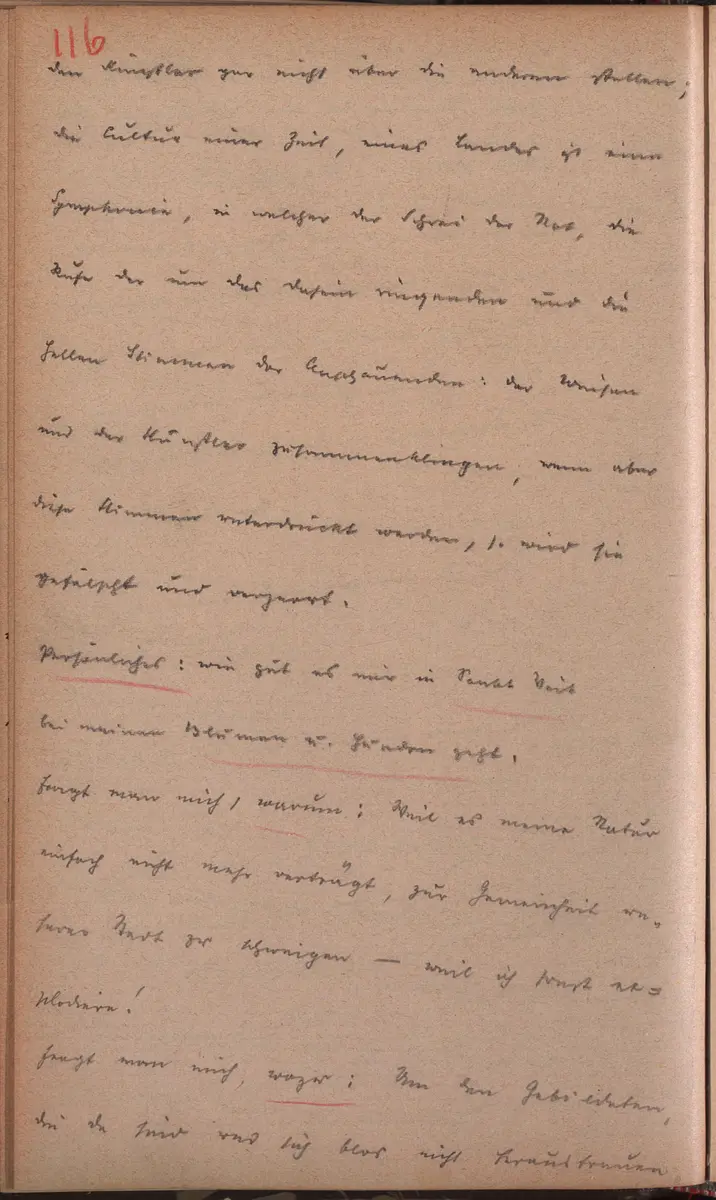 116
den Künstler gar nicht über die anderen stellen;
die Cultur einer Zeit, eines Landes ist eine
Symphonie, in welcher der Schrei der Not, die
Rufe der um das Dasein ringenden und die
hellen Stimmen der Anschauenden: der Weisen
und der Künstler zusammenklingen, wenn aber
diese Stimmen unterdrückt werden, so wird sie
gefälscht und verzerrt.
Persönliches: wie gut es mir in Sankt Veit
bei meinen Blumen u. Hunden geht.
Fragt man mich, warum: Weil es meine Natur
einfach nicht mehr verträgt, zur Gemeinheit un-
serer Stadt zu schweigen — weil ich sonst ex=
plodiere!
Fragt man mich, wozu: Um den Gebildeten,
die da sind und sich blos nicht heraustrauen